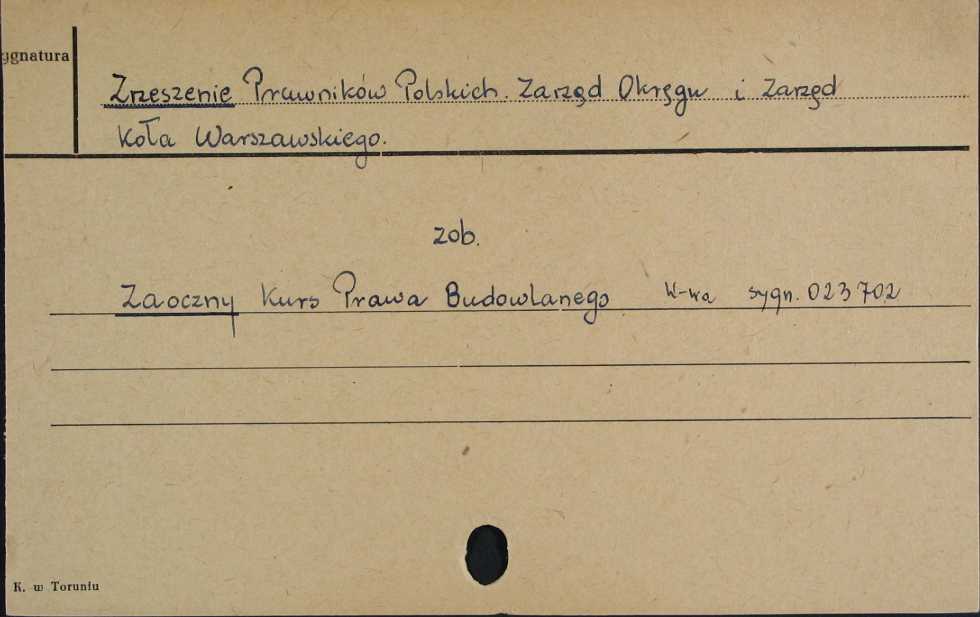 ygnatura
Zrzeszenie Prawników Polskich. Zarząd Okręgu i Zarząd
Koła Warszawskiego.
zob.
Zaoczny Kurs Prawa Budowlanego W-wa sygn. 023702
K. w Toruniu